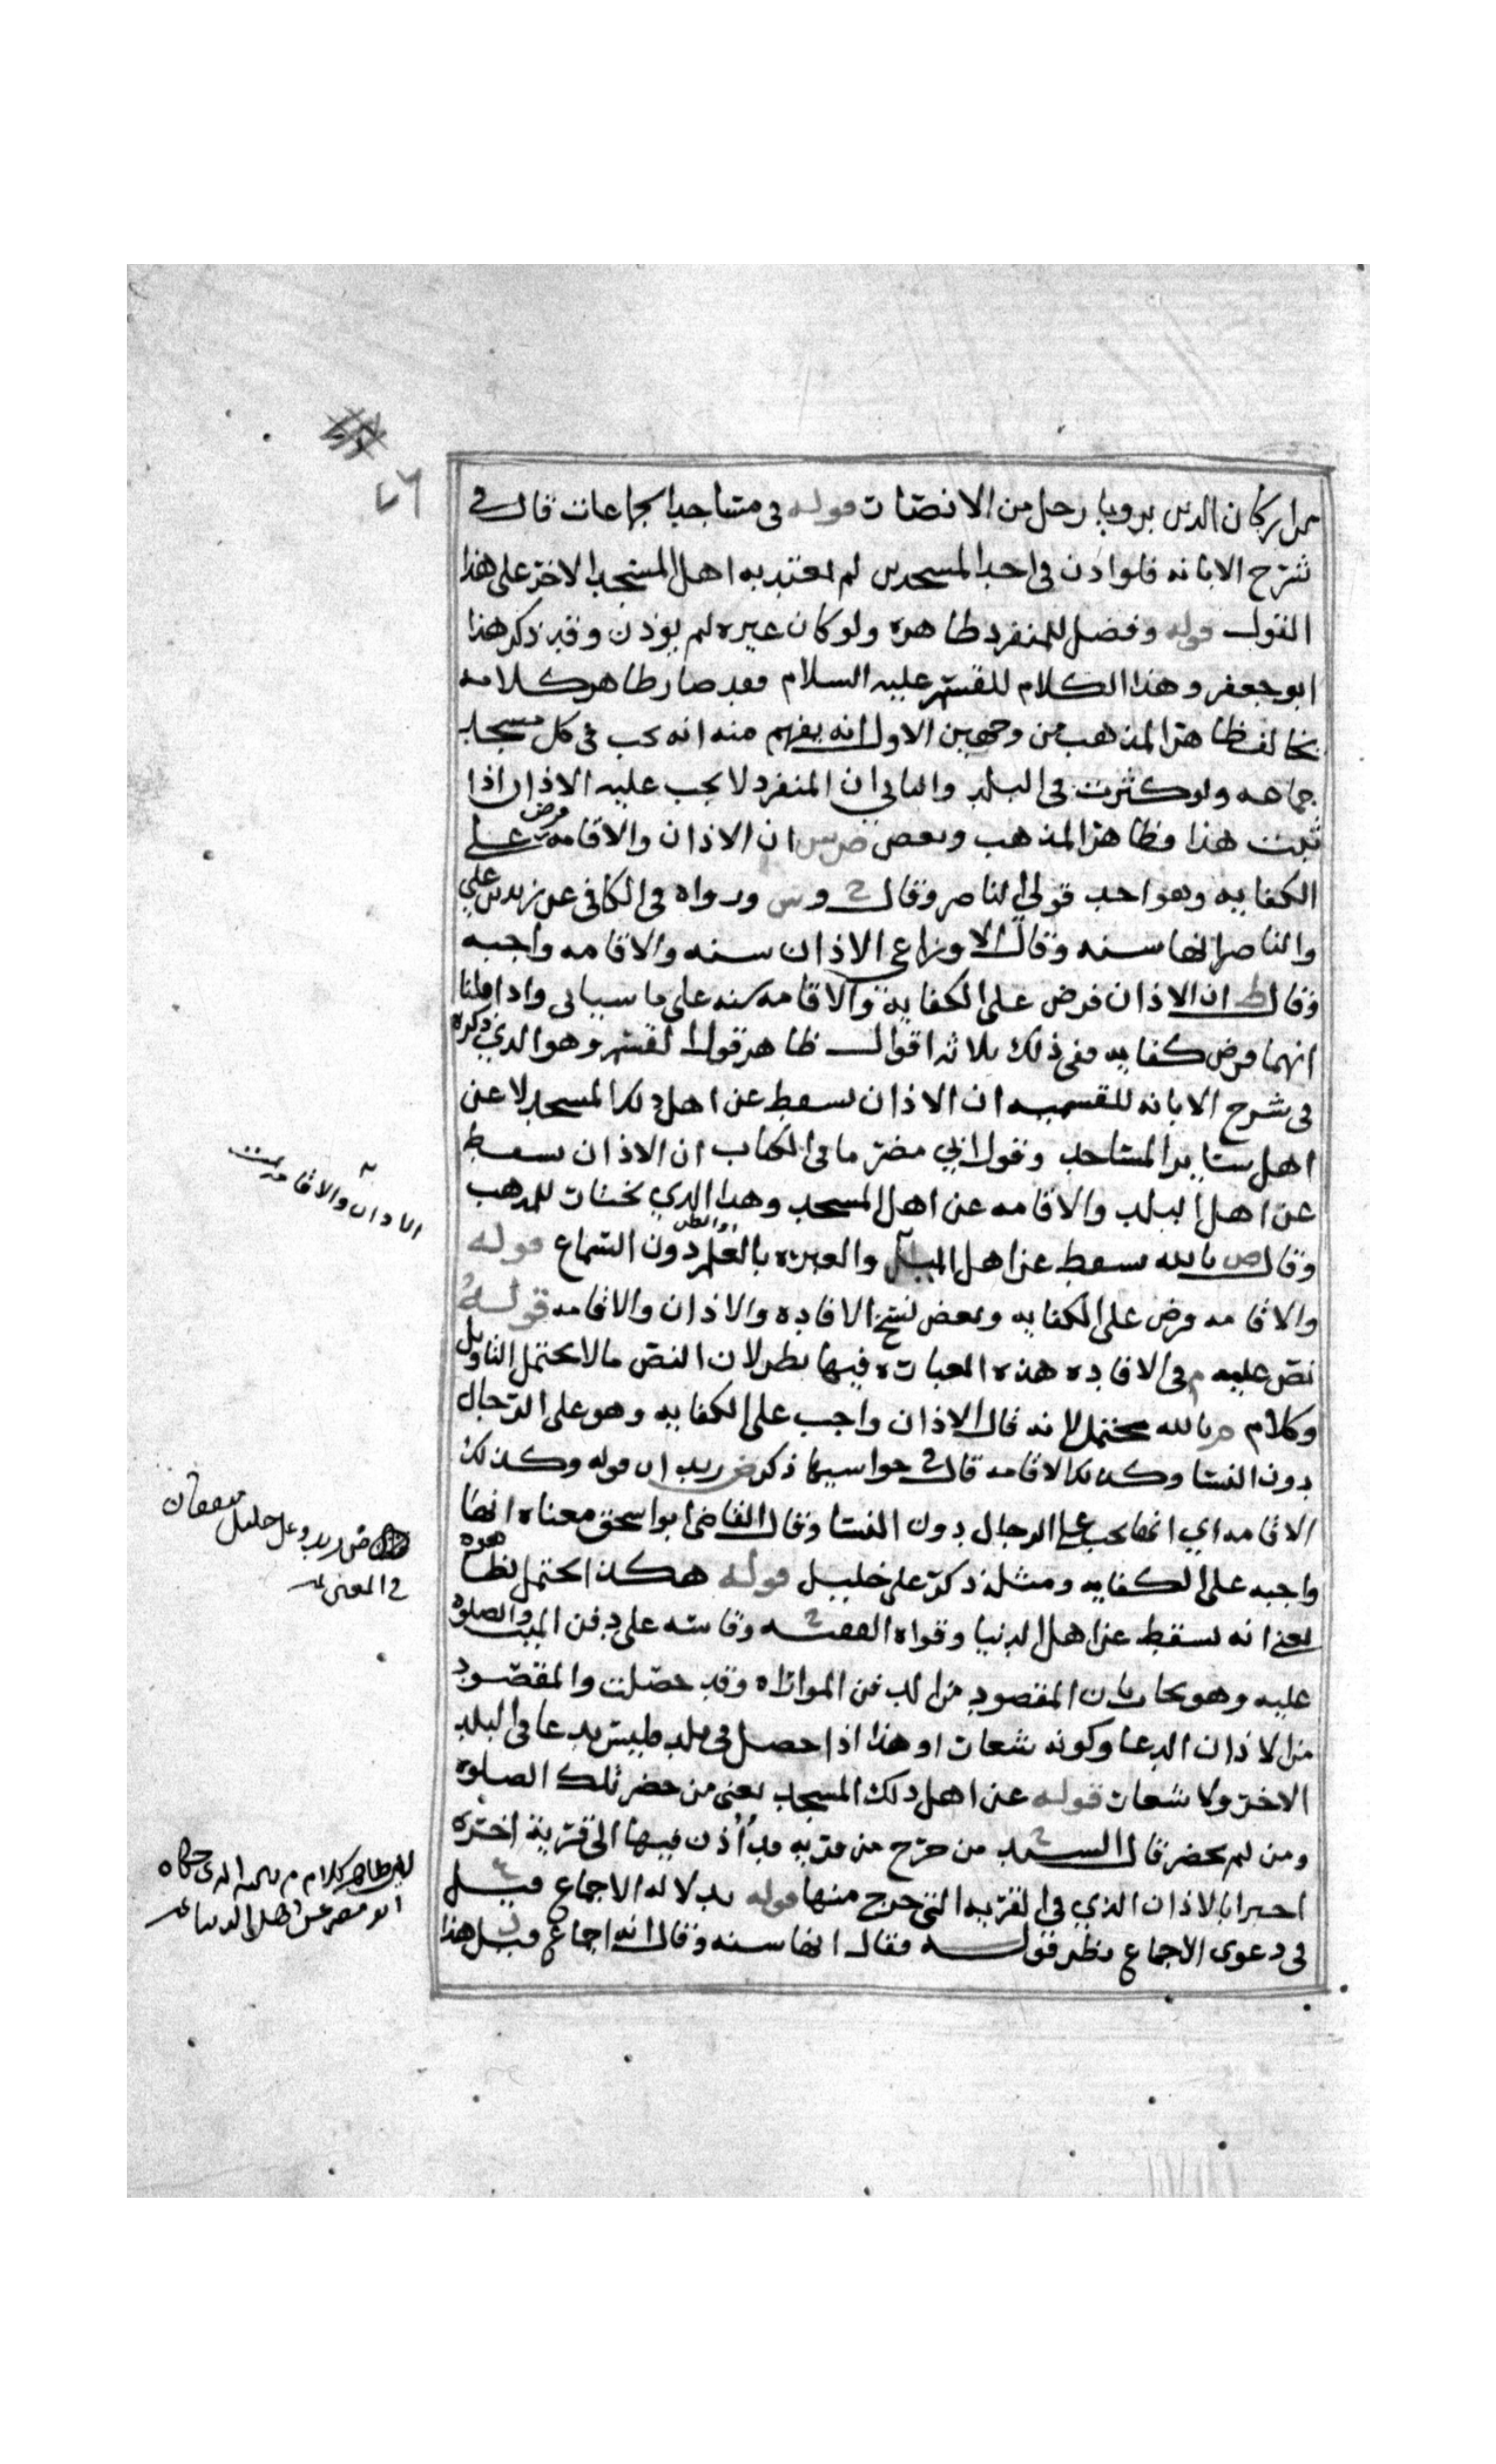 ٤٦
من الانصات قوله في مساجد الجماعات قال في
شرح الابانه فلو اذن في احد المسجدين لم يعتد به اهل المسجد الاخر على هذا
القول قوله وفضل للمنفرد ظاهره ولو كان غيره لم يؤذن وقد ذكر هذا
ابو جعفر وهذا الكلام للقسم عليه السلام فقد صار ظاهر كلامه
يخالف ظاهر المذهب من وجهين الاول انه يفهم منه انه يجب في كل مسجد
جماعه ولو كثرت في البلد والثاني ان المنفرد لا يجب عليه الاذان اذا
ثبت هذا فظاهر المذهب وبعض ان الاذان والاقامه فرض على
الكفايه وهو احد قولي الناصر وقال ورواه في الكافي عن زيد بن علي
والناصر انها سنه وقال الاوزاعي الاذان سنه والاقامه واجبه
وقال ط ان الاذان فرض على الكفاية والاقامه سنه على ما سياتي واذا قلنا
انهما فرض كفايه ففي ذلك ثلاثه اقوال ظاهر قول القسم وهو الذي ذكره
في شرح الابانه للقسميه ان الاذان يسقط عن اهل ذلك المسجد لا عن
اهل سائر المساجد وقول ابي مضر ما في الكتاب ان الاذان يسقط
عن اهل البلد والاقامه عن اهل المسجد وهذا الذي يختار للمذهب
وقال ص بالله يسقط عن اهل والعبره بالعلم او الظن دون السماع قوله
والاقامه فرض على الكفايه وبعض نسخ الافاده والاذان والاقامه قوله
نص عليه م في الافاده هذه العباره فيها نظر لان النص ما لا يحتمل التاويل
وكلام م بالله محتمل لانه قال الاذان واجب على الكفايه وهو على الرجال
دون النسا وكذلك الاقامه قال ذكر ان قوله وكذلك
الاقامه اي انها تجب على الرجال دون النسا وقال القاضي ابو اسحق معناه انها
واجبه على الكفايه ومثله ذكر علي خليل قوله هكذا يحتمل ظاهره
يعني انه يسقط عن اهل الدنيا وقواه الفقيه وقاسه على دفن الميت والصلوه
عليه وهو يجاب بان المقصود من الدفن المواراه وقد حصلت والمقصود
من الاذان الدعا وكونه شعارا وهذا اذا حصل في بلد فليس بدعا في البلد
الاخر ولا شعار قوله عن اهل ذلك المسجد يعني من حضر تلك الصلوه
ومن لم يحضر قال السيد من خرج من قريه قد اذن فيها الى قرية اخرى
اجزاه الاذان الذي في القريه التي خرج منها قوله بدلاله الاجماع قيل
في دعوى الاجماع نظر قوله فقال انها سنه وقال انه اجماع قيل هذا
الاذان والاقامه
زيد وعلي خليل متفقان
في المعنى
ظاهر كلام م بالله الذي حكاه
ابو مضر عن اهل الدنيا